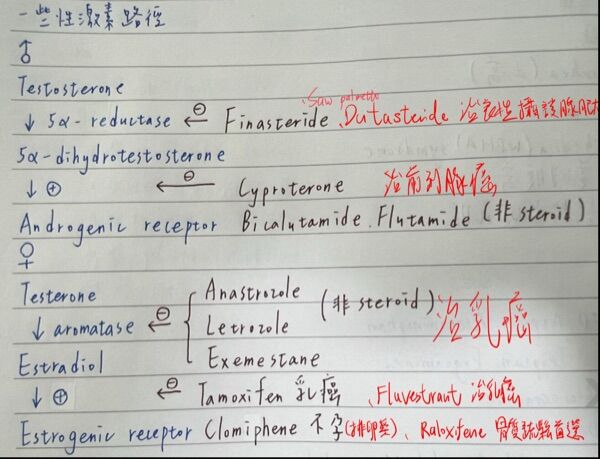 一些性激素路徑
♂
Testosterone
Saw palmetto
↓ 5α-reductase ⊖← Finasteride、Dutasteride 治良性攝護腺肥大
5α-dihydrotestosterone
↓⊕ ⊖← Cyproterone 治前列腺癌
Androgenic receptor Bicalutamide. Flutamide (非 steroid)
♀
Testerone Anastrozole
↓ aromatase ⊖← { Letrozole (非 steroid) 治乳癌
Estradiol Exemestane
↓⊕ ⊖← Tamoxifen 乳癌、Fluvestrant 治乳癌
Estrogenic receptor Clomiphene 不孕(排卵藥)、Raloxifene 骨質疏鬆首選